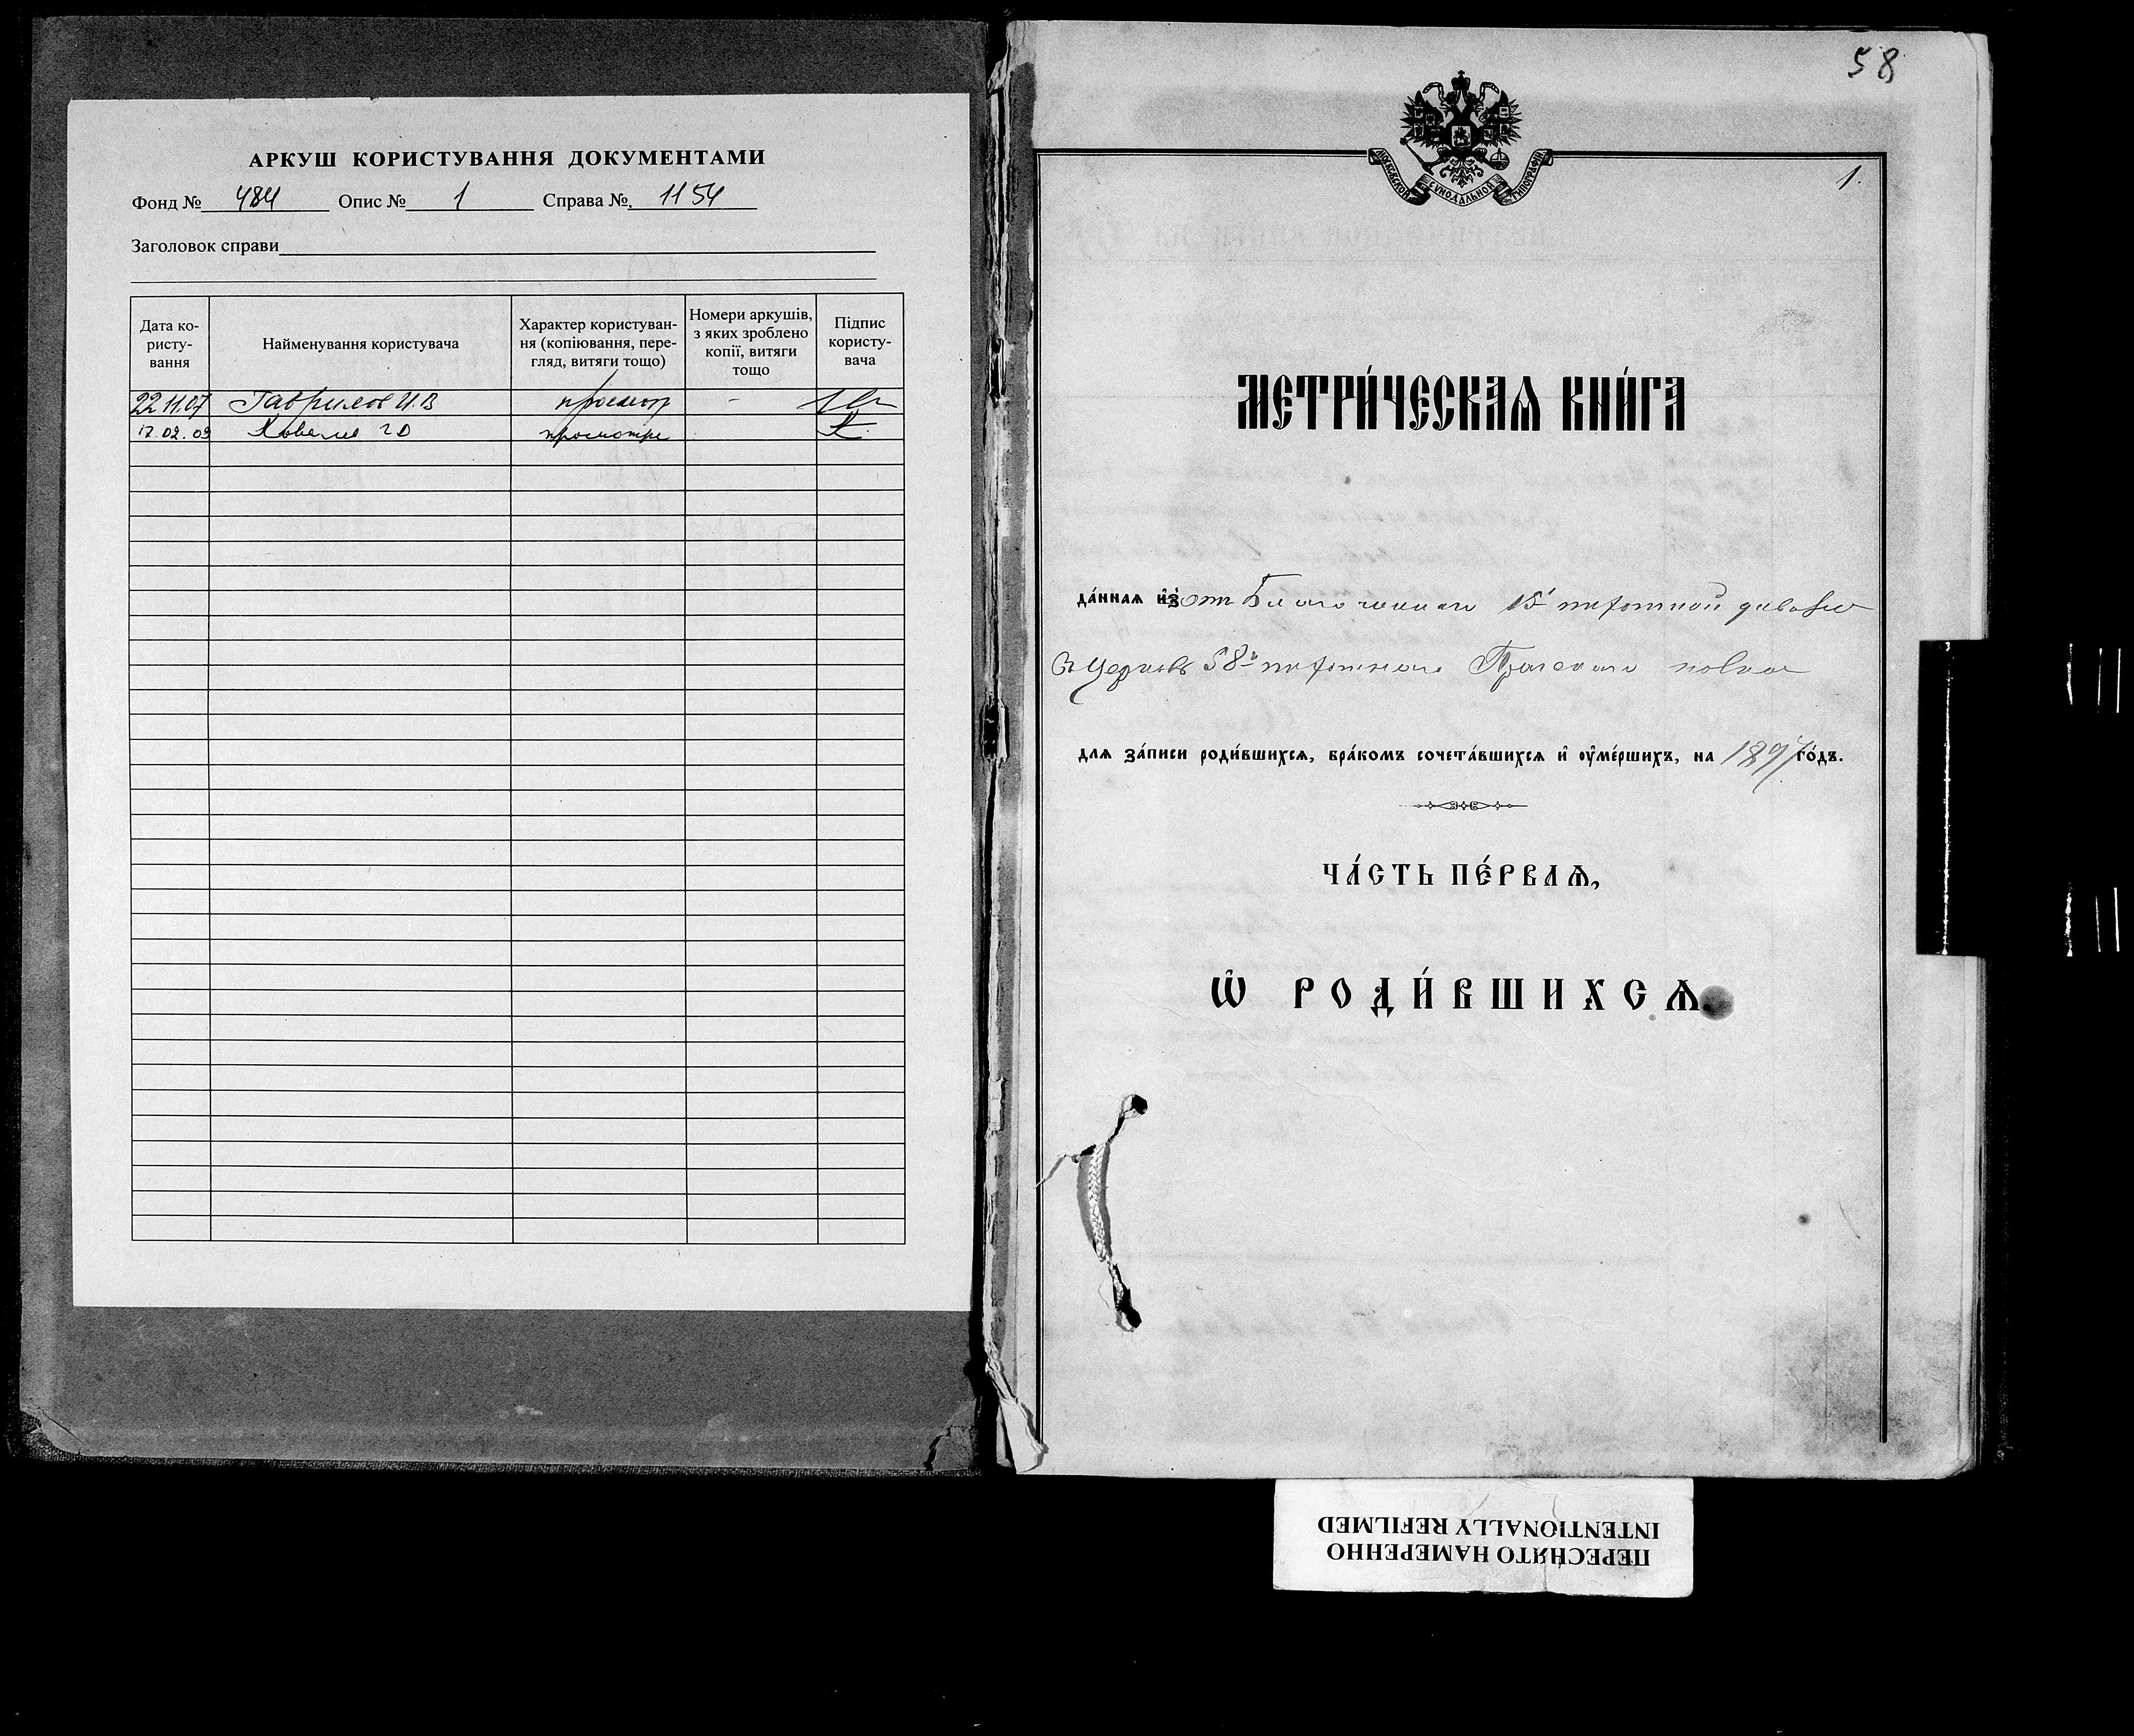 АРКУШ КОРИСТУВАННЯ ДОКУМЕНТАМИ
Фонд № 484 Опис № 1 Справа №, 1154
Заголовок справи
Дата ко-
ристу-
вання
Найменування користувача
Характер користуван-
ня (копіювання, пере-
гляд, витяги тощо)
Номери аркушів,
з яких зроблено
копії, витяги
тощо
Підпис
користу-
вача
22.11.07 Гаврилов И.В просмотр -
17.02.09 просмотр
58
1.
МОСКОВСКОЙ СѴНОДАЛЬНОЙ ТИПОГРАФІИ
МЕТРИ́ЧЕСКАѦ КНИ́ГА
да́ннаѧ и҆з̾ отъ Благочиннаго 15й пѣхотной дивизіи
въ церковь 58го пѣхотнаго Прагскаго полка
для за́писи роди́вшихсѧ, бра́комъ сочета́вшихсѧ и҆ оу҆ме́ршихъ, на 1897 го́дъ.
ЧА́СТЬ ПЕ́РВАѦ,
Ѡ҆ РОДИ́ВШИХСѦ.
ПЕРЕСНЯТО НАМЕРЕННО
INTENTIONALLY REFILMED